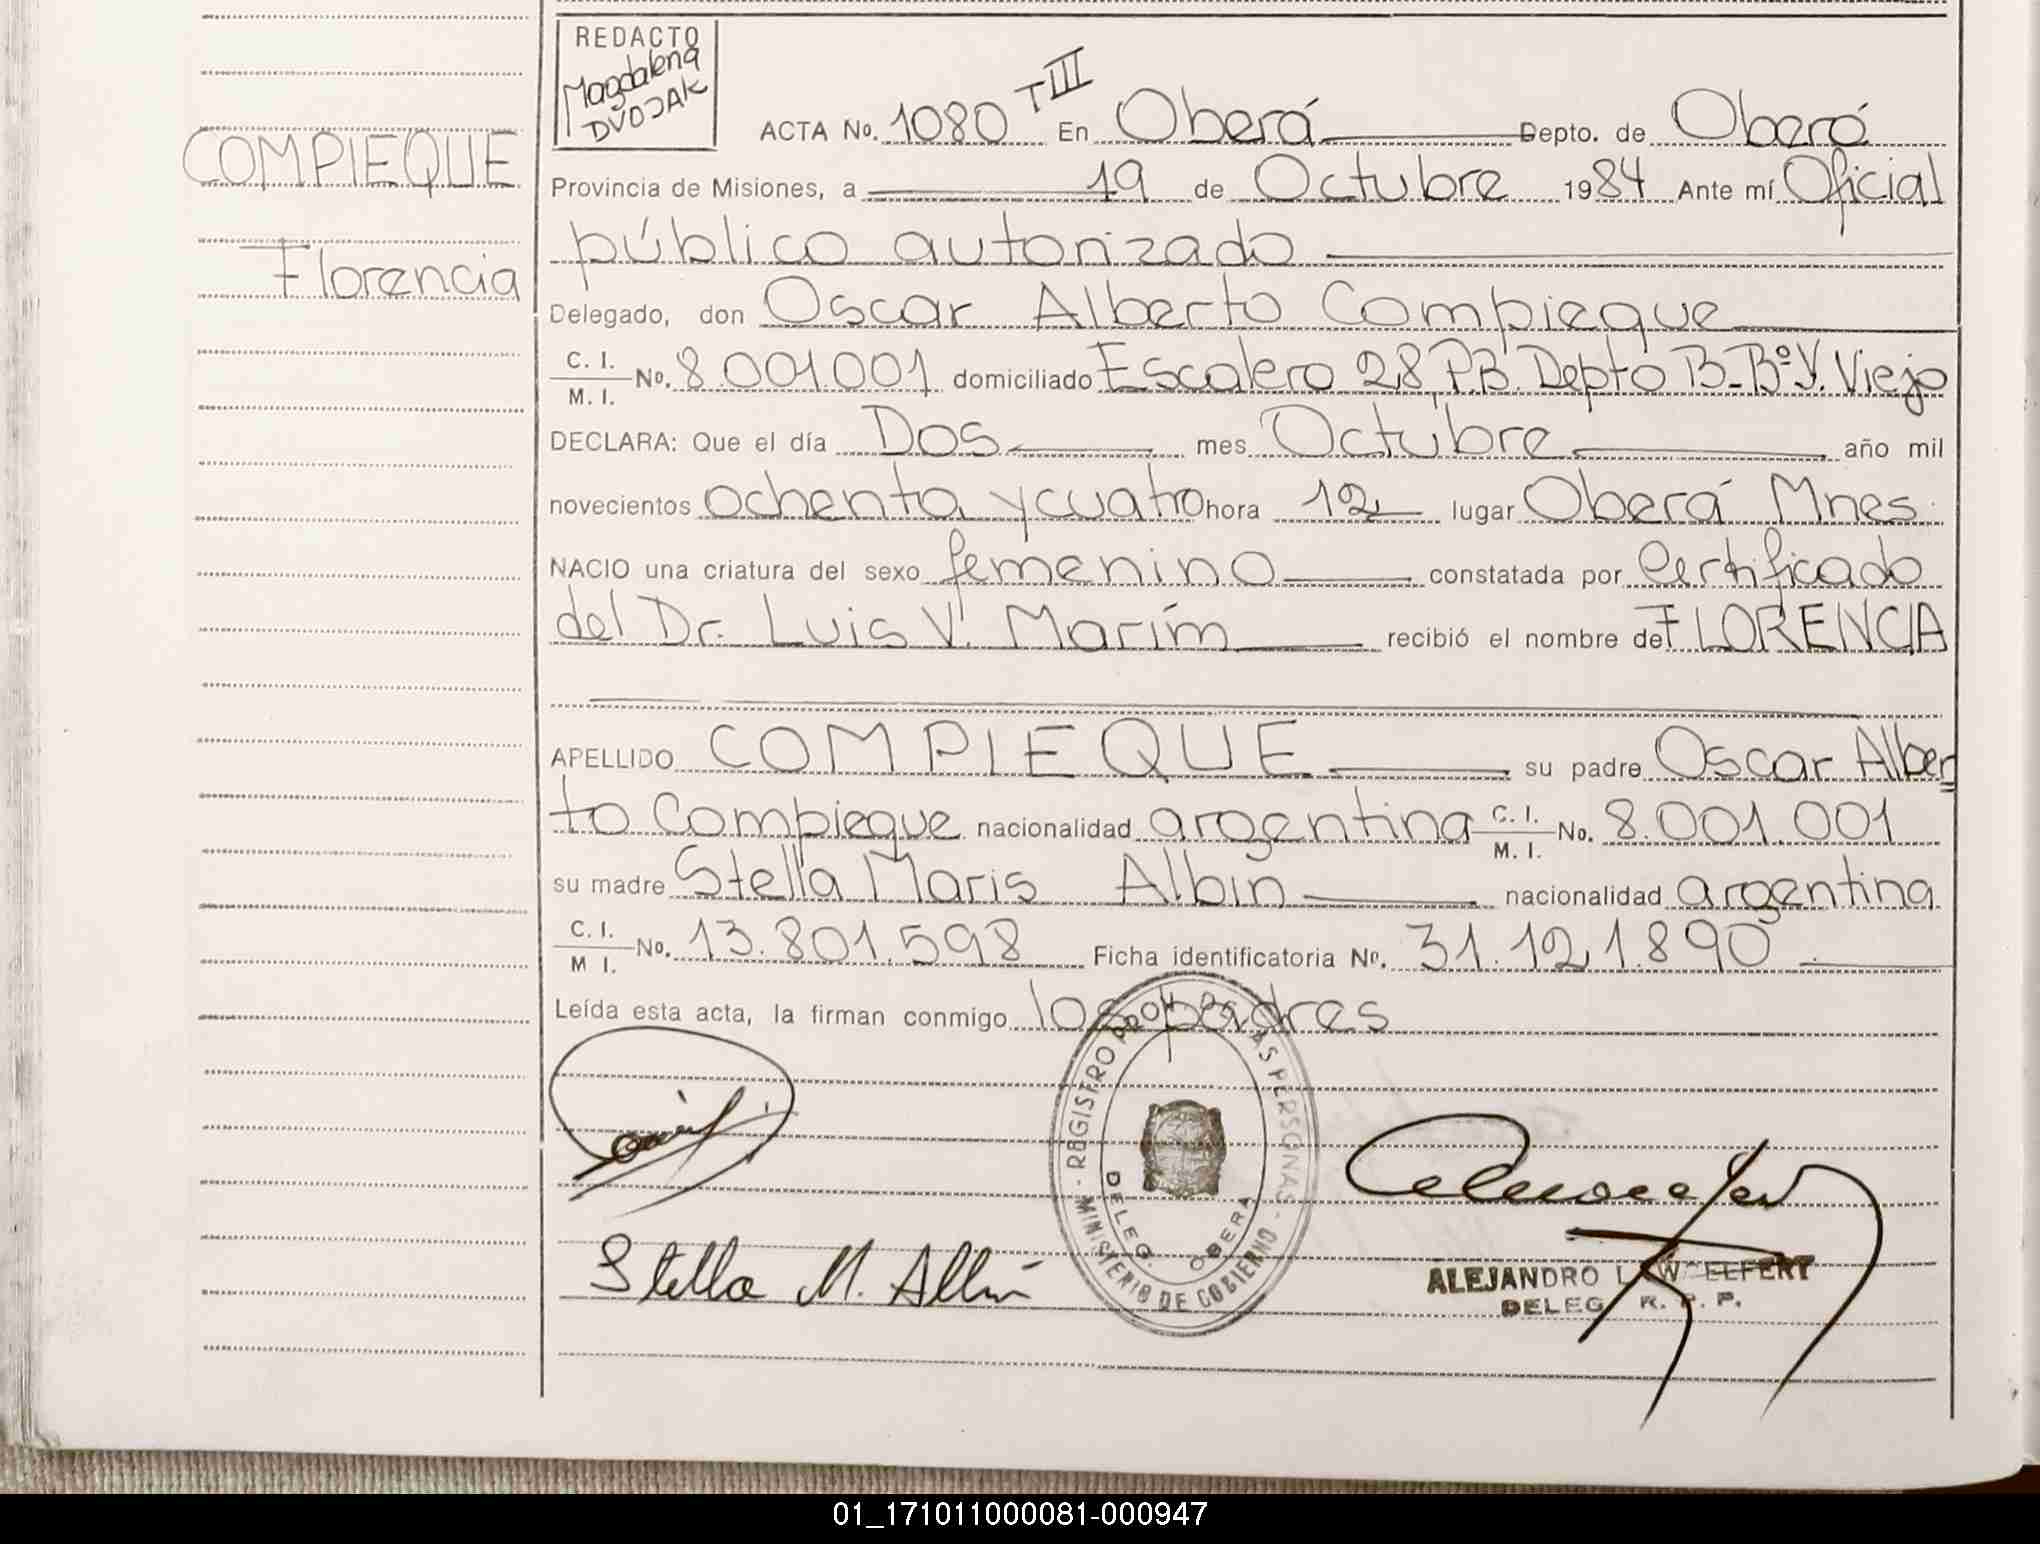 REDACTO
Magdalena
DVOJAK
COMPIEQUE
Florencia
ACTA No. 1080 TIII En Oberá Depto. de Oberá
Provincia de Misiones, a 19 de Octubre 1984 Ante mí Oficial
público autorizado
Delegado, don Oscar Alberto Compieque
C. I. / M. I. No. 8.001.001 domiciliado Escalero 28 PB. Depto B-Bº Y. Viejo
DECLARA: Que el día Dos mes Octubre año mil
novecientos ochenta y cuatro hora 12 lugar Oberá Mnes.
NACIO una criatura del sexo femenino constatada por Certificado
del Dr. Luis V. Marím recibió el nombre de FLORENCIA
APELLIDO COMPIEQUE su padre Oscar Alber
to Compieque nacionalidad argentina C. I. / M. I. No. 8.001.001
su madre Stella Maris Albin nacionalidad argentina
C. I. / M I. No. 13.801.598 Ficha identificatoria No. 31.121.890
Leída esta acta, la firman conmigo los padres
REGISTRO PROV. DE LAS PERSONAS - MINISTERIO DE GOBIERNO -
DELEG. OBERA
Stella M. Albin
ALEJANDRO L. WAELFERT
DELEG. R. P. P.
01_171011000081-000947